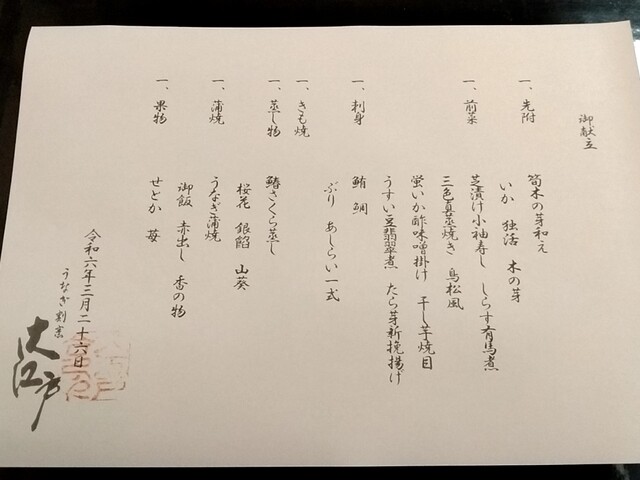 御献立
一、先附
筍木の芽和え
いか 独活 木の芽
一、前菜
芝漬け小袖寿し しらす有馬煮
三色真蒸焼き 鳥松風
蛍いか酢味噌掛け 干し芋焼目
うすい豆翡翠煮 たら芽新挽揚げ
一、刺身
鮪 鯛
ぶり あしらい一式
一、きも焼
一、蒸し物
鰆さくら蒸し
桜花 銀餡 山葵
一、蒲焼
うなぎ蒲焼
御飯 赤出し 香の物
一、果物
せとか 苺
令和六年三月二十六日
うなぎ割烹
大江戸